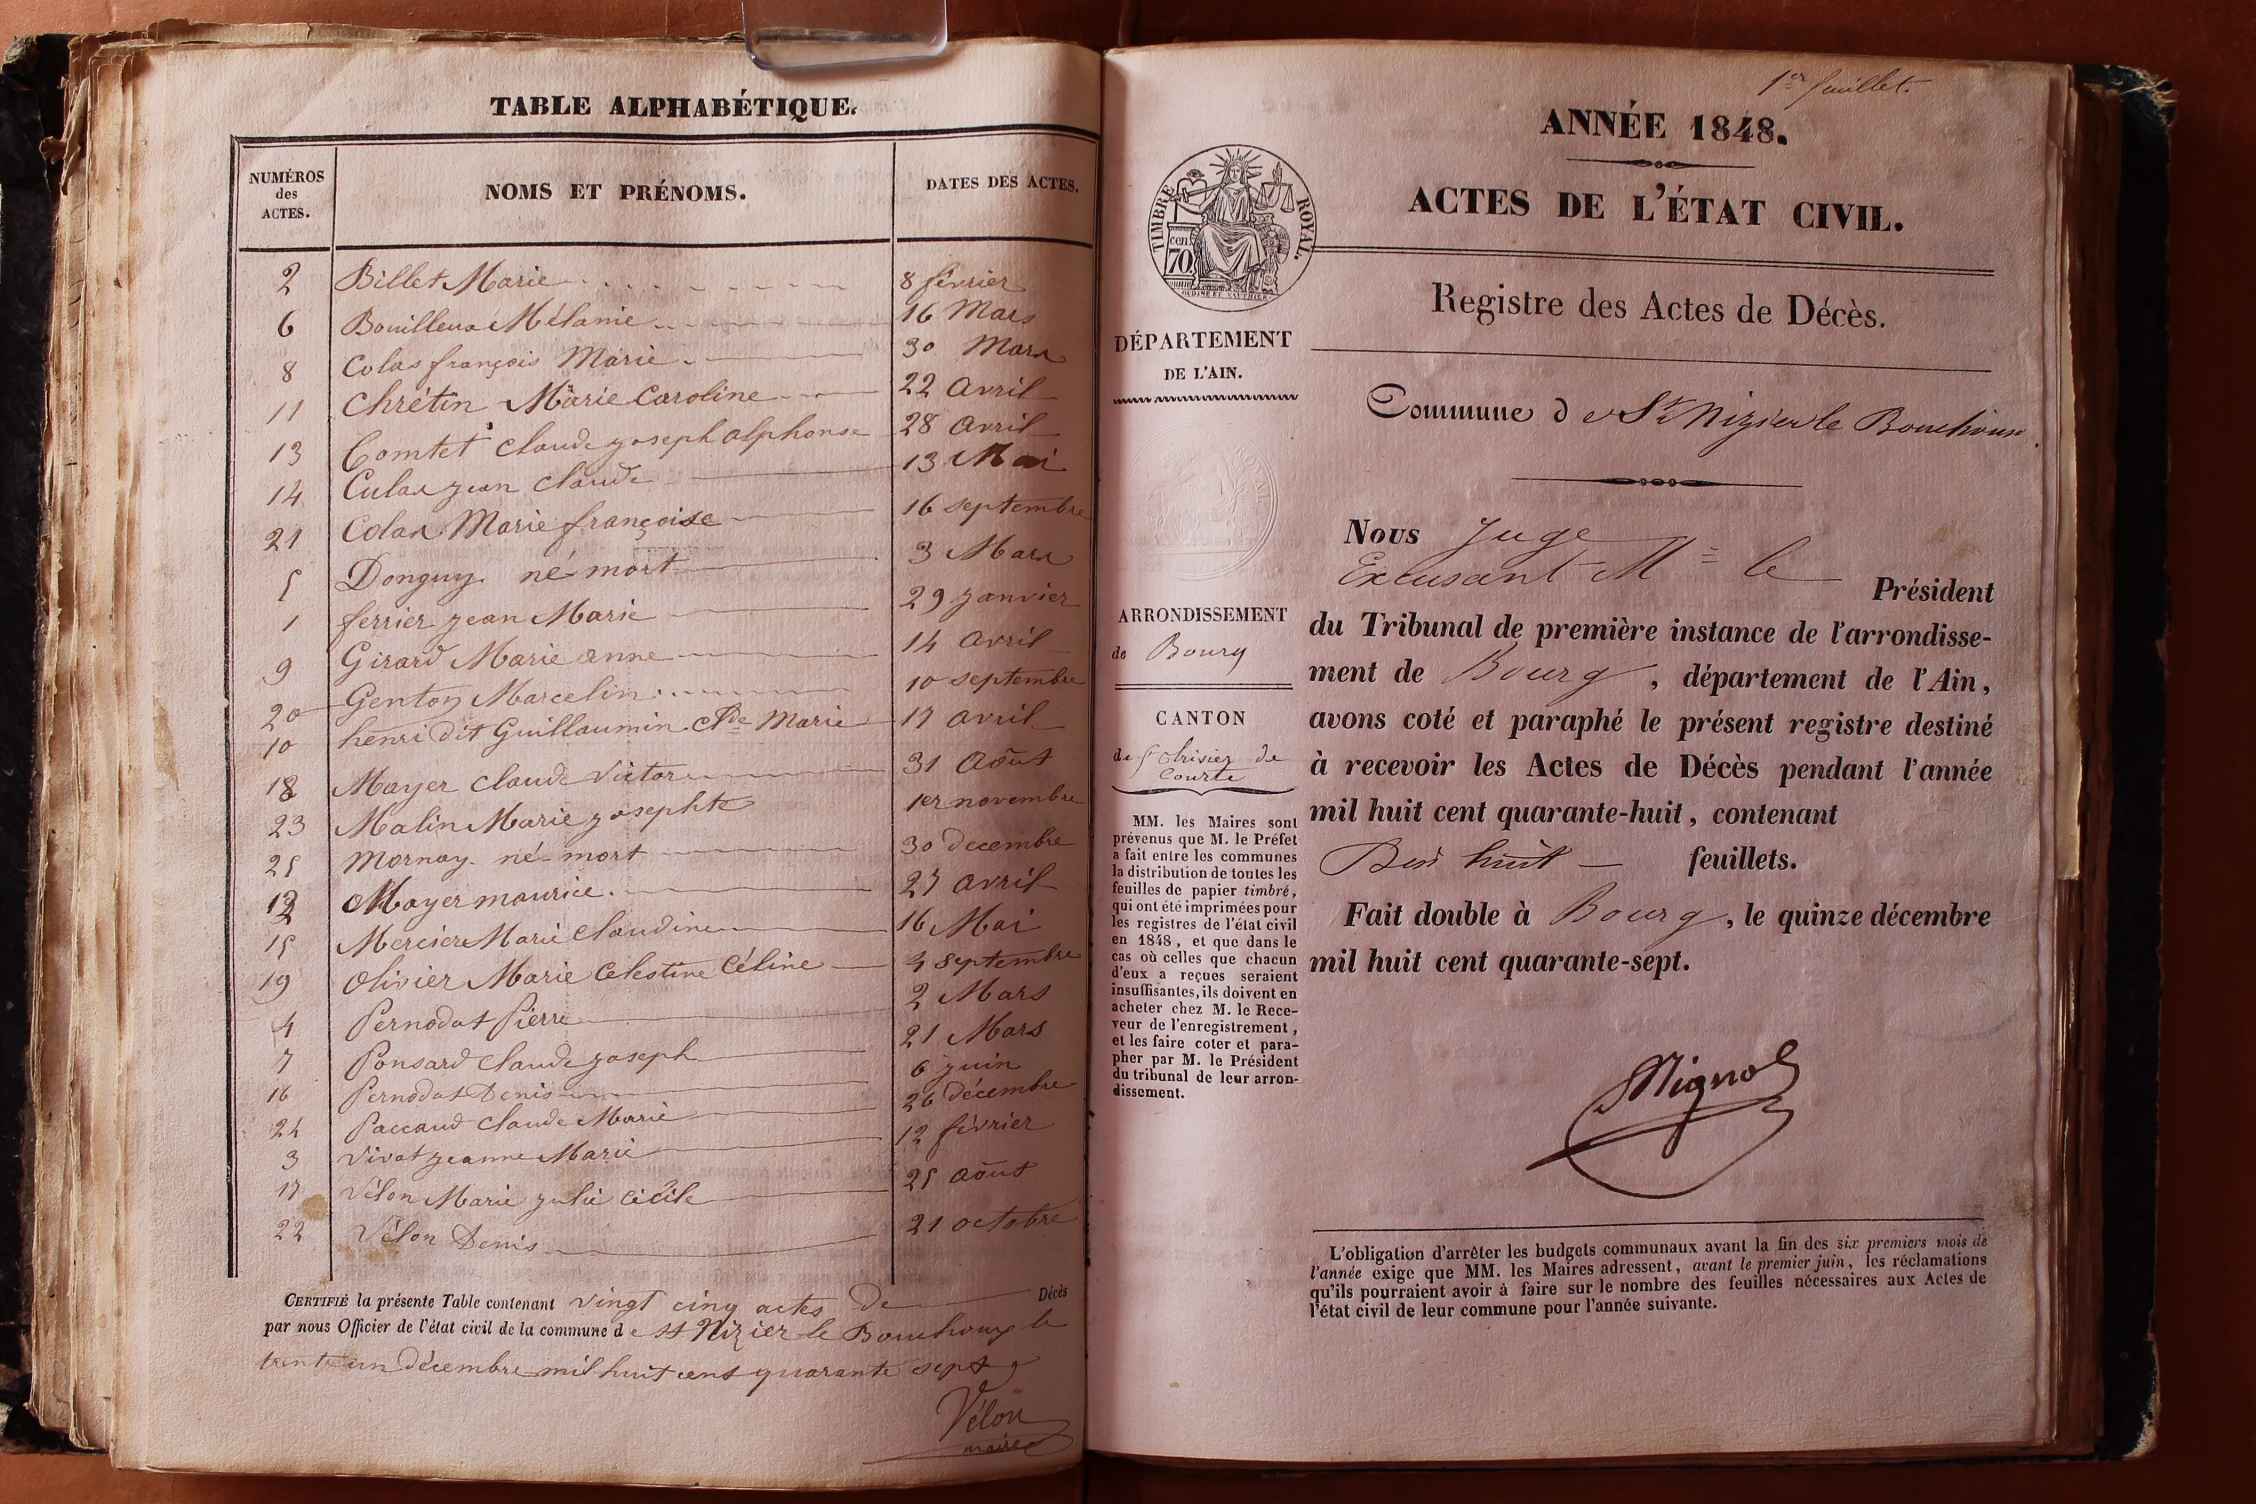 TABLE ALPHABÉTIQUE.
NUMÉROS des ACTES. NOMS ET PRÉNOMS. DATES DES ACTES.
2 Billet Marie 8 février
6 Bouilleux Mélanie 16 Mars
8 Colas françois Marie 30 Mars
11 Chrétin Marie Caroline 22 avril
13 Comtet Claude joseph alphonse 28 avril
14 Culas jean Claude 13 Mai
21 Colas Marie françoise 16 septembre
5 Donguy né-mort 3 Mars
1 ferrier jean Marie 29 janvier
9 Girard Marie anne 14 avril
20 Genton Marcelin 10 septembre
10 henri dit Guillaumin Cde Marie 17 avril
18 Mayer Claude Victor 31 Août
23 Malin Marie josephte 1er novembre
25 Mornay né-mort 30 decembre
12 Mayer maurice 27 avril
15 Mercier Marie Claudine 16 Mai
19 Olivier Marie Celestine Céline 4 septembre
4 Pernodat Pierre 2 Mars
7 Ponsard Claude joseph 21 Mars
16 Pernodat Denis 6 juin
24 Paccaud Claude Marie 26 décembre
3 Vivat jeanne Marie 12 février
17 Vélon Marie julie Cécile 25 août
22 Vélon Denis 21 octobre
CERTIFIÉ la présente Table contenant vingt cinq actes de Décès
par nous Officier de l'état civil de la commune de St Nizier le Bouchoux le
trente un décembre mil huit cent quarante sept
Vélon
maire
1er feuillet.
ANNÉE 1848.
ACTES DE L'ÉTAT CIVIL.
TIMBRE ROYAL.
70 cen
Registre des Actes de Décès.
DÉPARTEMENT
DE L'AIN.
Commune de St Nizier le Bouchoux
ARRONDISSEMENT
de Bourg
CANTON
de St Trivier de
Courte
MM. les Maires sont
prévenus que M. le Préfet
a fait entre les communes
la distribution de toutes les
feuilles de papier timbré,
qui ont été imprimées pour
les registres de l'état civil
en 1848, et que dans le
cas où celles que chacun
d'eux a reçues seraient
insuffisantes, ils doivent en
acheter chez M. le Rece-
veur de l'enregistrement,
et les faire coter et para-
pher par M. le Président
du tribunal de leur arron-
dissement.
Nous Juge
Excusant Mr le Président
du Tribunal de première instance de l'arrondisse-
ment de Bourg, département de l'Ain,
avons coté et paraphé le présent registre destiné
à recevoir les Actes de Décès pendant l'année
mil huit cent quarante-huit, contenant
huit feuillets.
Fait double à Bourg, le quinze décembre
mil huit cent quarante-sept.
L'obligation d'arrêter les budgets communaux avant la fin des six premiers mois de
l'année exige que MM. les Maires adressent, avant le premier juin, les réclamations
qu'ils pourraient avoir à faire sur le nombre des feuilles nécessaires aux Actes de
l'état civil de leur commune pour l'année suivante.